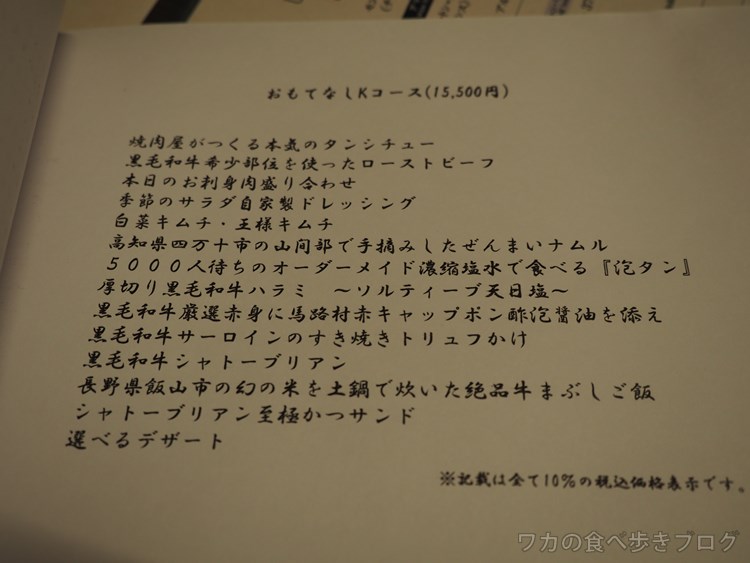 おもてなしKコース(15,500円)
焼肉屋がつくる本気のタンシチュー
黒毛和牛希少部位を使ったローストビーフ
本日のお刺身肉盛り合わせ
季節のサラダ自家製ドレッシング
白菜キムチ・王様キムチ
高知県四万十市の山間部で手摘みしたぜんまいナムル
５０００人待ちのオーダーメイド濃縮塩水で食べる『泡タン』
厚切り黒毛和牛ハラミ　～ソルティーブ天日塩～
黒毛和牛厳選赤身に馬路村赤キャップポン酢泡醤油を添え
黒毛和牛サーロインのすき焼きトリュフかけ
黒毛和牛シャトーブリアン
長野県飯山市の幻の米を土鍋で炊いた絶品牛まぶしご飯
シャトーブリアン至極かつサンド
選べるデザート
※記載は全て10%の税込価格表示です。
ワカの食べ歩きブログ